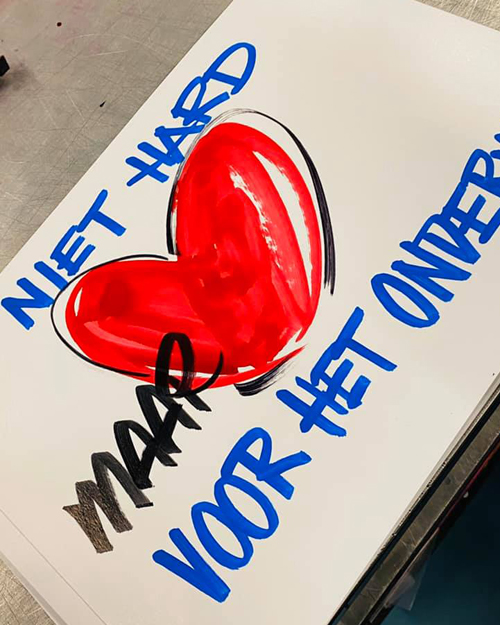 NIET HARD
MAAR
VOOR HET ONDERW